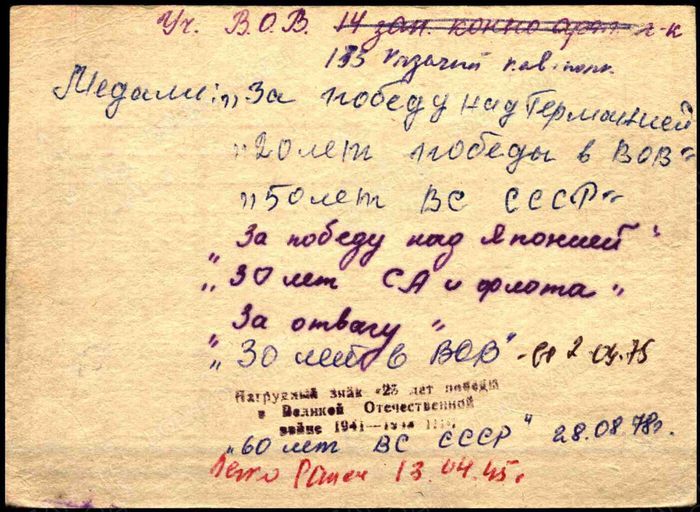 Уч. В.О.В. 14 зап. конно арт. п-к
Казачий кав. полк.
Медали: „За победу над Германией
„20 лет победы в ВОВ"
„50 лет ВС СССР"
„За победу над Японией"
„30 лет СА и флота"
„За отвагу"
„30 лет в ВОВ" - от 2
Нагрудный знак «25 лет победы
в Великой Отечественной
войне 1941—
„60 лет ВС СССР" 28.08.78г.
Легко Ранен 13.04.45г.